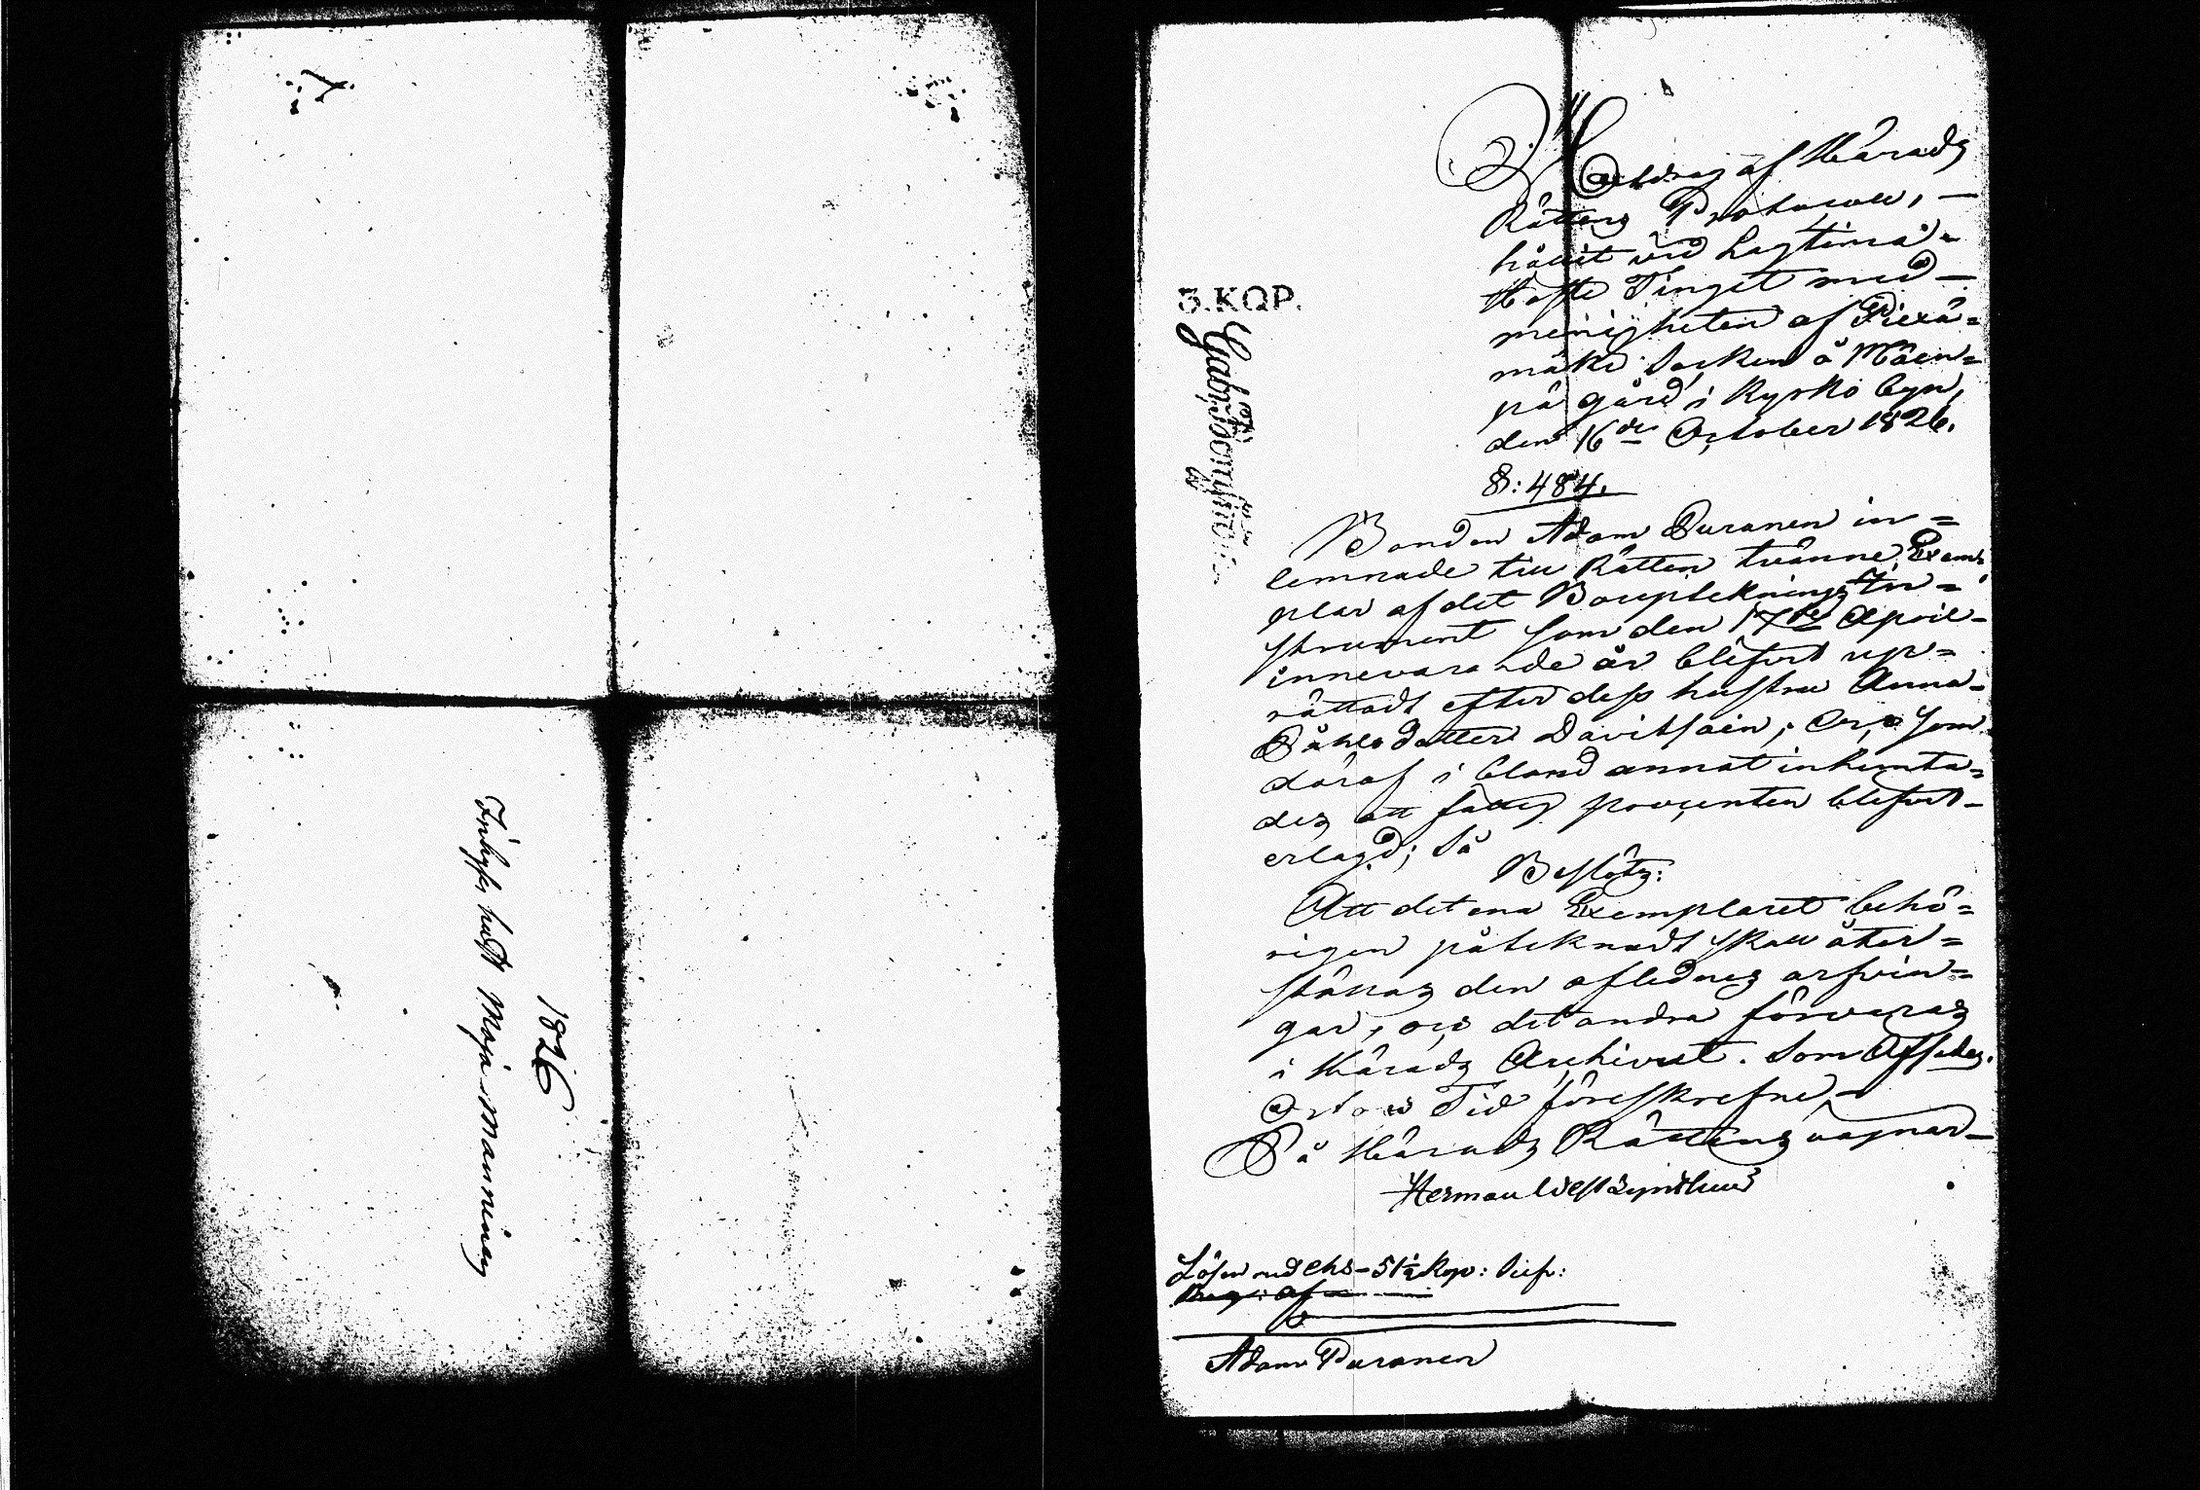 Inhyses hust: Maja Manninen
1826
3. KOP.
Utdrag af Härads
Rättens Protocoll,
hållit vid Lagtima
Höste Tinget med
menigheten af Piexä=
mäki Socken å Mäen=
pä gård i Kyrko byn,
den 16de October 1826.
§: 484.
Bonden Adam Puranen in=
lemnade till Rätten tvänne Exem=
plar af det Bouptekningz In=
strument som den 17de April
innevarande år blifvit up=
rättadt efter dess hustru Anna
Påhlsdotter Davitsain; Och som
däraf i bland annat inhemta=
dez att fattig procenten blifvit
erlagd; Så
Beslötz:
Att det ena Exemplaret behö=
rigen påteknadt skall åter=
ställaz den aflednez arfvin=
gar, och det andra förvaraz
i Häradz Archivet. Som Afsades.
Ort och Tid föreskrefne.
På Häradz Rättens vägnar
Herman Westzynthius
Lösen med chs - 51 1/2 Kop: Silf:
Adam Puranen